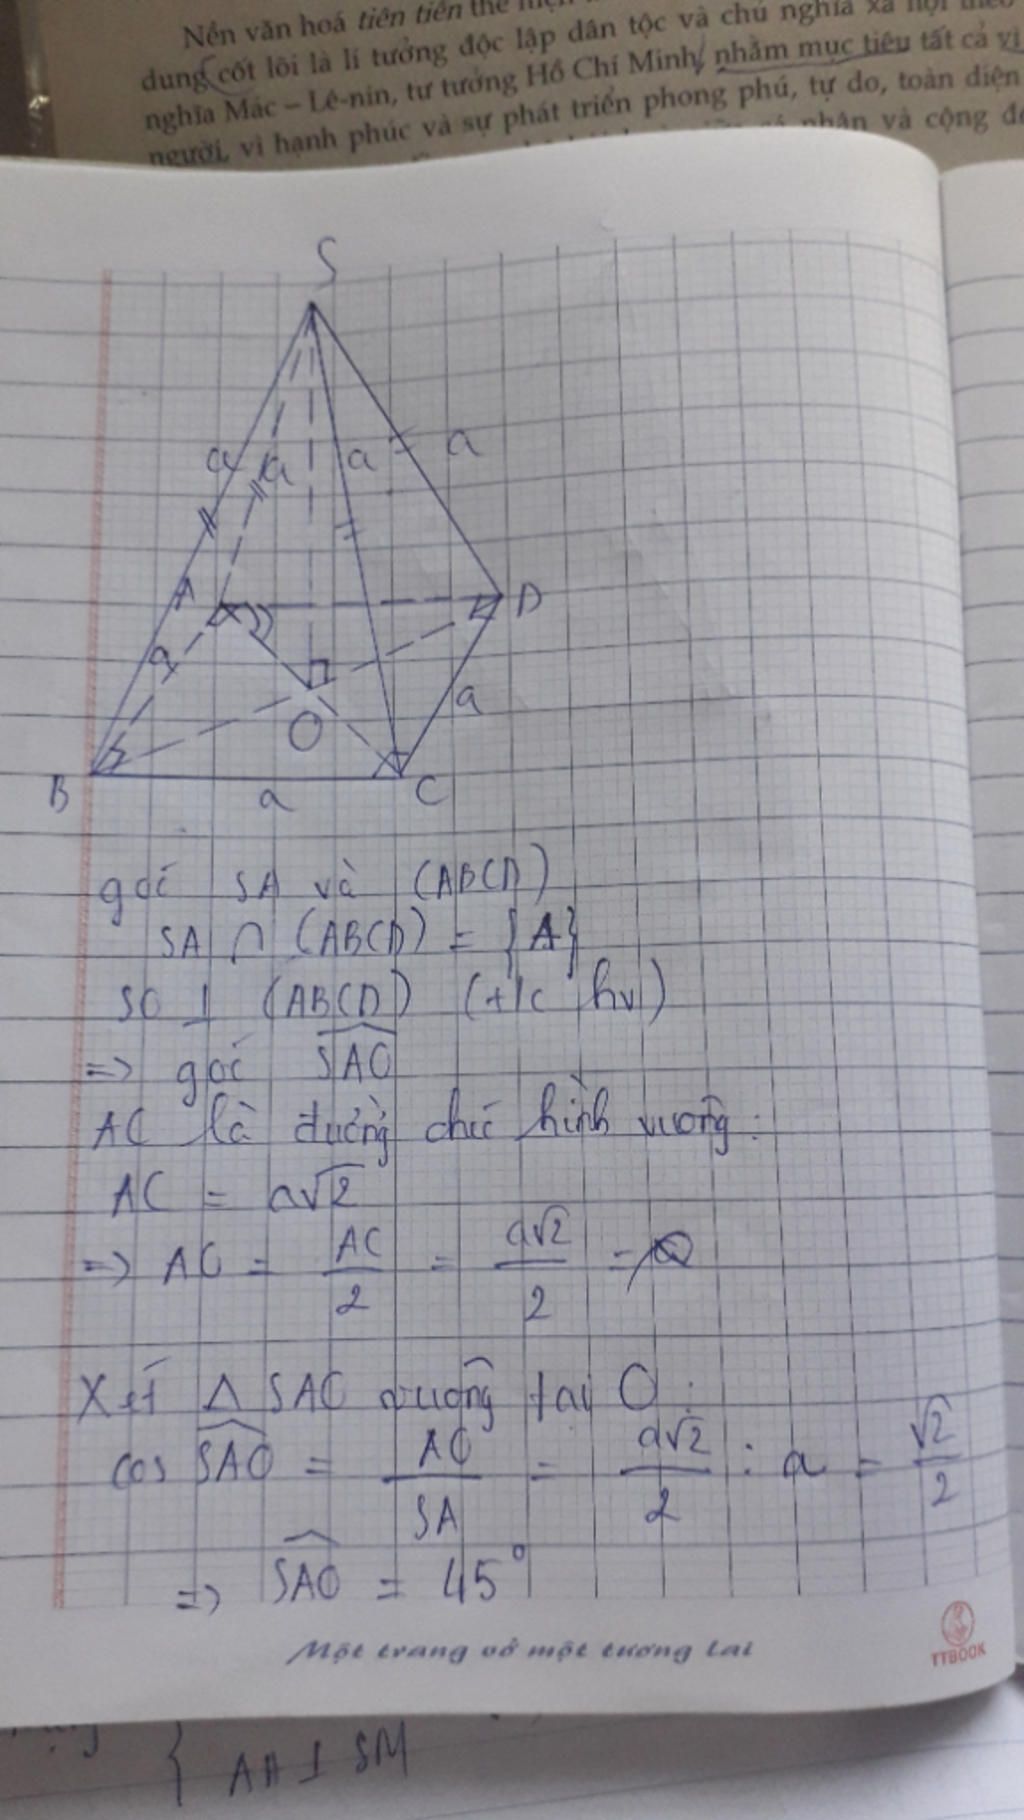 Nền văn hoá tiên tiến thể hiện
dung cốt lõi là lí tưởng độc lập dân tộc và chủ nghĩa xã hội theo
nghĩa Mác – Lê-nin, tư tưởng Hồ Chí Minh, nhằm mục tiêu tất cả vì
người, vì hạnh phúc và sự phát triển phong phú, tự do, toàn diện
nhân và cộng đồ
S
a a a a
A D
a a
O
B a C
góc SA và (ABCD)
SA ∩ (ABCD) = {A}
SO ⊥ (ABCD) (t/c hv)
=> góc SAO
AC là đường chéo hình vuông:
AC = a√2
=> AO = AC/2 = a√2/2 =
Xét Δ SAO vuông tại O:
cos SAO = AO/SA = a√2/2 : a = √2/2
=> SAO = 45°
Một trang vở một tương lai
TTBOOK
AH ⊥ SM